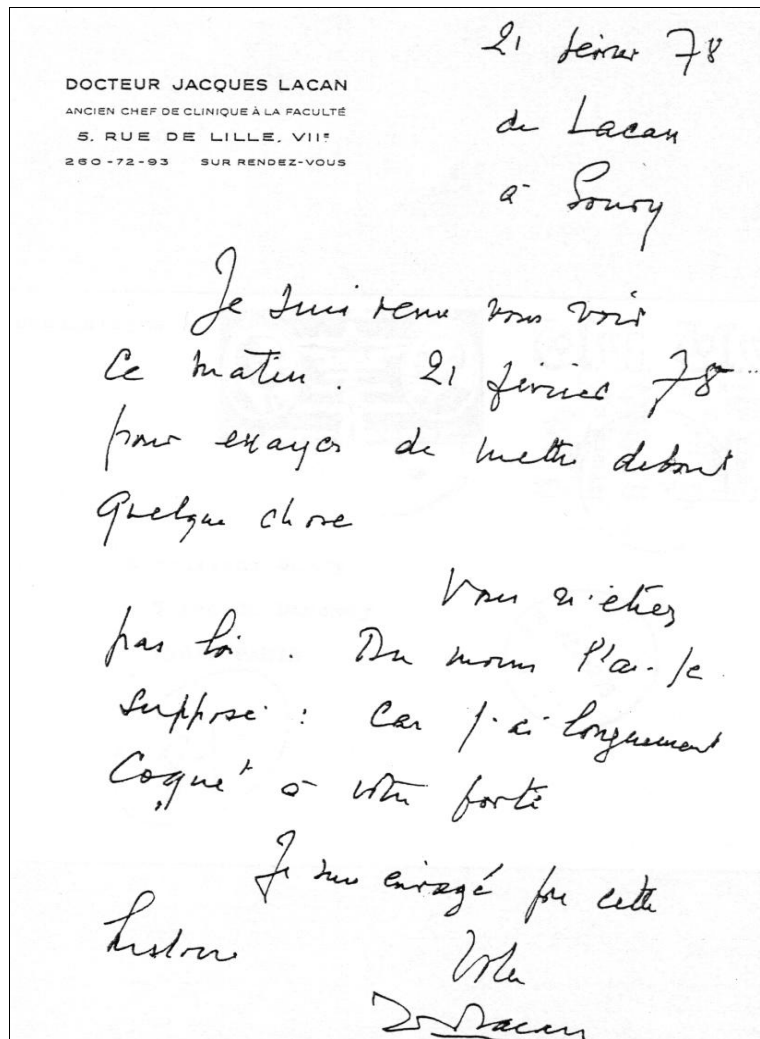 DOCTEUR JACQUES LACAN
ANCIEN CHEF DE CLINIQUE À LA FACULTÉ
5, RUE DE LILLE, VIIE
260-72-93 SUR RENDEZ-VOUS
21 février 78
de Lacan
à Soury
Je suis venu vous voir
ce matin. 21 février 78
pour essayer de mettre debout
quelque chose
Vous n'étiez
pas là. Du moins l'ai-je
supposé : car j'ai longuement
à votre porte
Je suis enragé par cette
histoire
Votre
Lacan